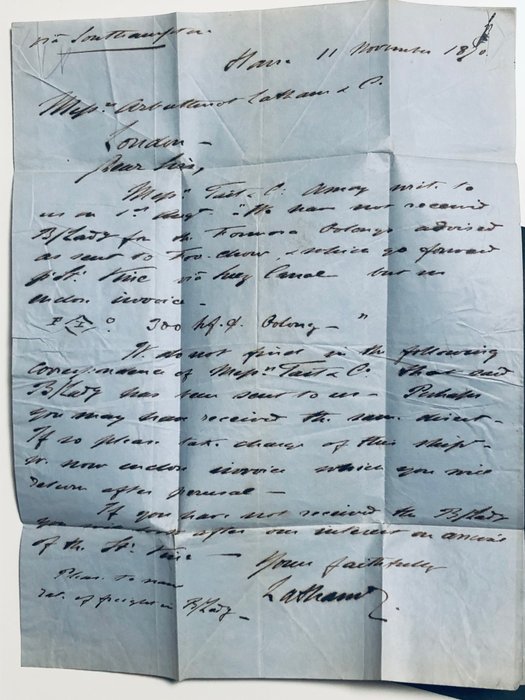 via Southampton
11 November 1870
Messrs Arbuthnot Latham & Co.
London –
Dear Sirs,
Messrs Tait & Co. Amoy write to
us on 1st Augt "We have not received
B/Ladg for the Formosa Oolongs advised
as sent to Foo-chow, & which go forward
p. Str. via Suez Canal but we
enclose invoice –
300 hf. ch. Oolong – "
We do not find in the following
correspondence of Messrs Tait & Co. that said
B/Ladg has been sent to us – Perhaps
you may have received the same direct –
If so please take charge of this shipt
We now enclose invoice which you will
return after perusal –
If you have not received the B/Ladg
you after our interest on arrival
of the Str.
Yours faithfully
Please to note
rate of freight in B/Ladg –